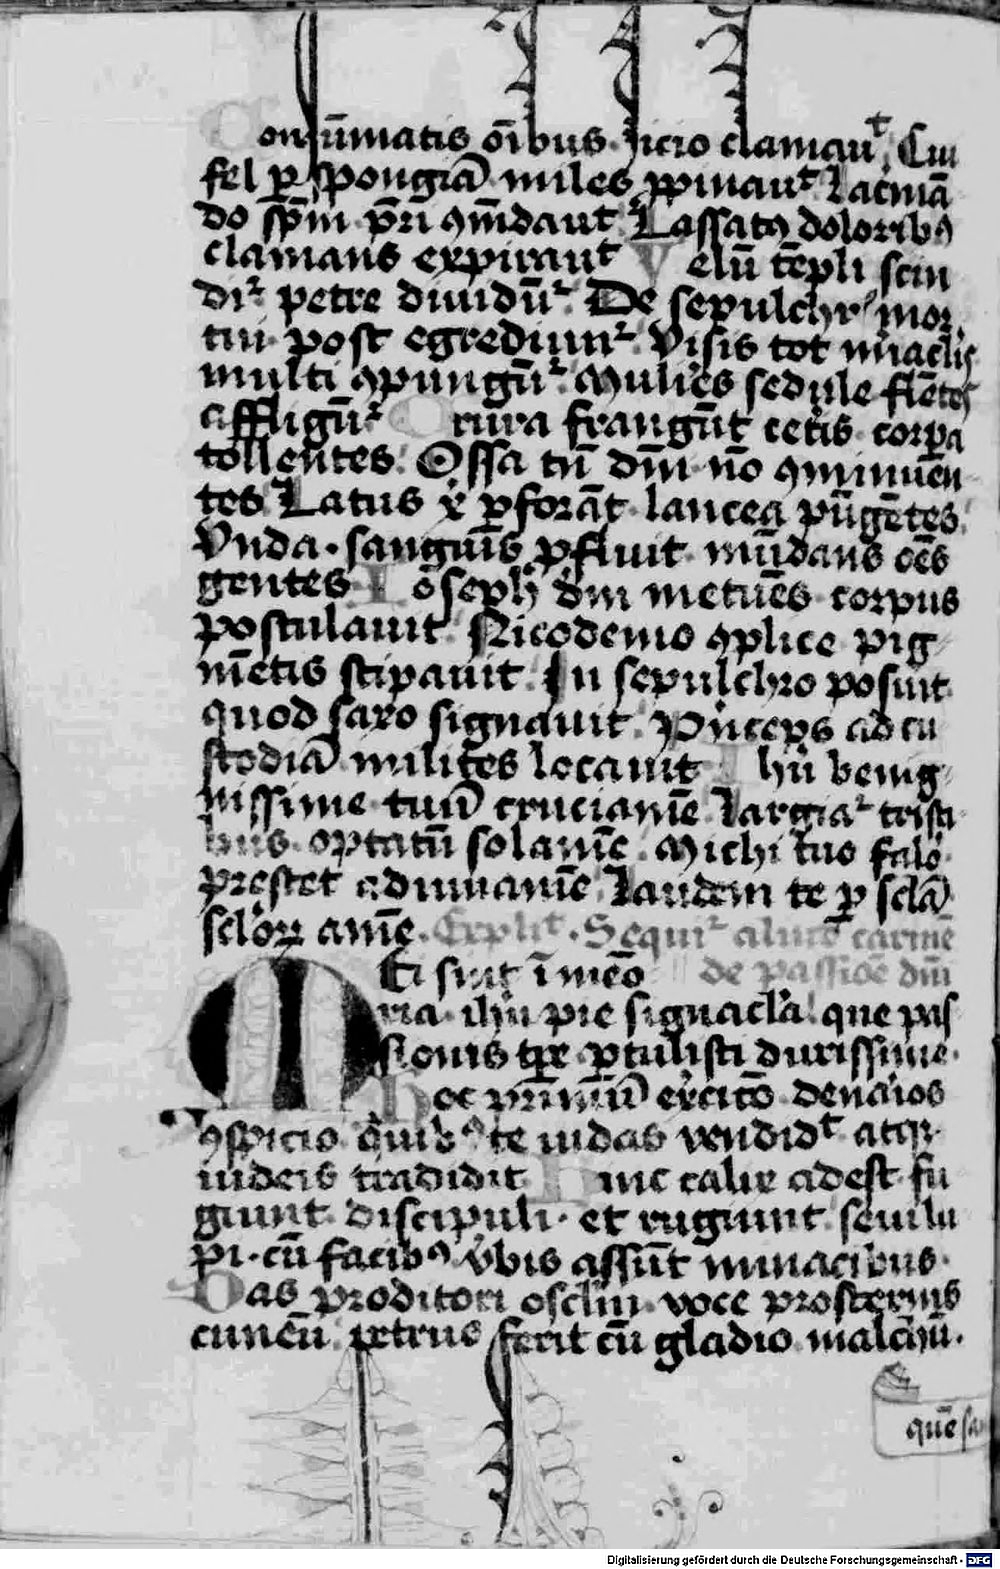 Consūmatis oībus sicio clamauᵗ. Cui
fel ꝑ spongiā miles ꝓpinauᵗ Lacmā
do sp̄m pr̄i ꝯm̄dauit Lassatꝯ doloribꝯ
clamans expirauit Velū tēpli scin
diᵗ petre diuidūᵗ De sepulchrꝭ mor
tui post egrediunᵗ Visis tot mīraclis
multi ꝯpungūᵗ Mulieꝛs sedule flētes
affliguᵗ Crura frangūt ceteris corꝑa
tollentes Ossa tn̄ dn̄i nō ꝯminuen
tes Latus xp̄ ꝑforāt lancea pūgētes
Vnda sanguis ꝓfluit mūdans oēs
gentes Ioseph dm̄ metuēs corpus
postulauit Nicodemo ꝯplice pig
mētis stipauit In sepulchro posuit
quod saxo signauit Pn̄ceps ad cu
stodiā milites locauit Ihū benig
nissime tuū cruciamē largiaᵗ trista
bus optatū solamē Michi tuo
prestet adiuuamē laudem te ꝑ scl̄a
scl̄oꝝ amē. Explicit. Sequiᵗ aliud carmē
de passiōe dn̄i
Mei sint ī mēo
ria ihū pie signacl̄a que pas
sionis tp̄e ꝑtulisti durissime
Hec primū denarios
ꝯspicio quibꝯ te iudas vendidᵗ atqꝫ
iudeis tradidit Hinc calix adest fu
giunt discipuli et rugiunt seui lu
pi cū facibꝯ vbis assūt minacibus
Das proditori oscl̄m voce prosternis
cuneū petrus ferit cū gladio malchū.
quē san
Digitalisierung gefördert durch die Deutsche Forschungsgemeinschaft - DFG